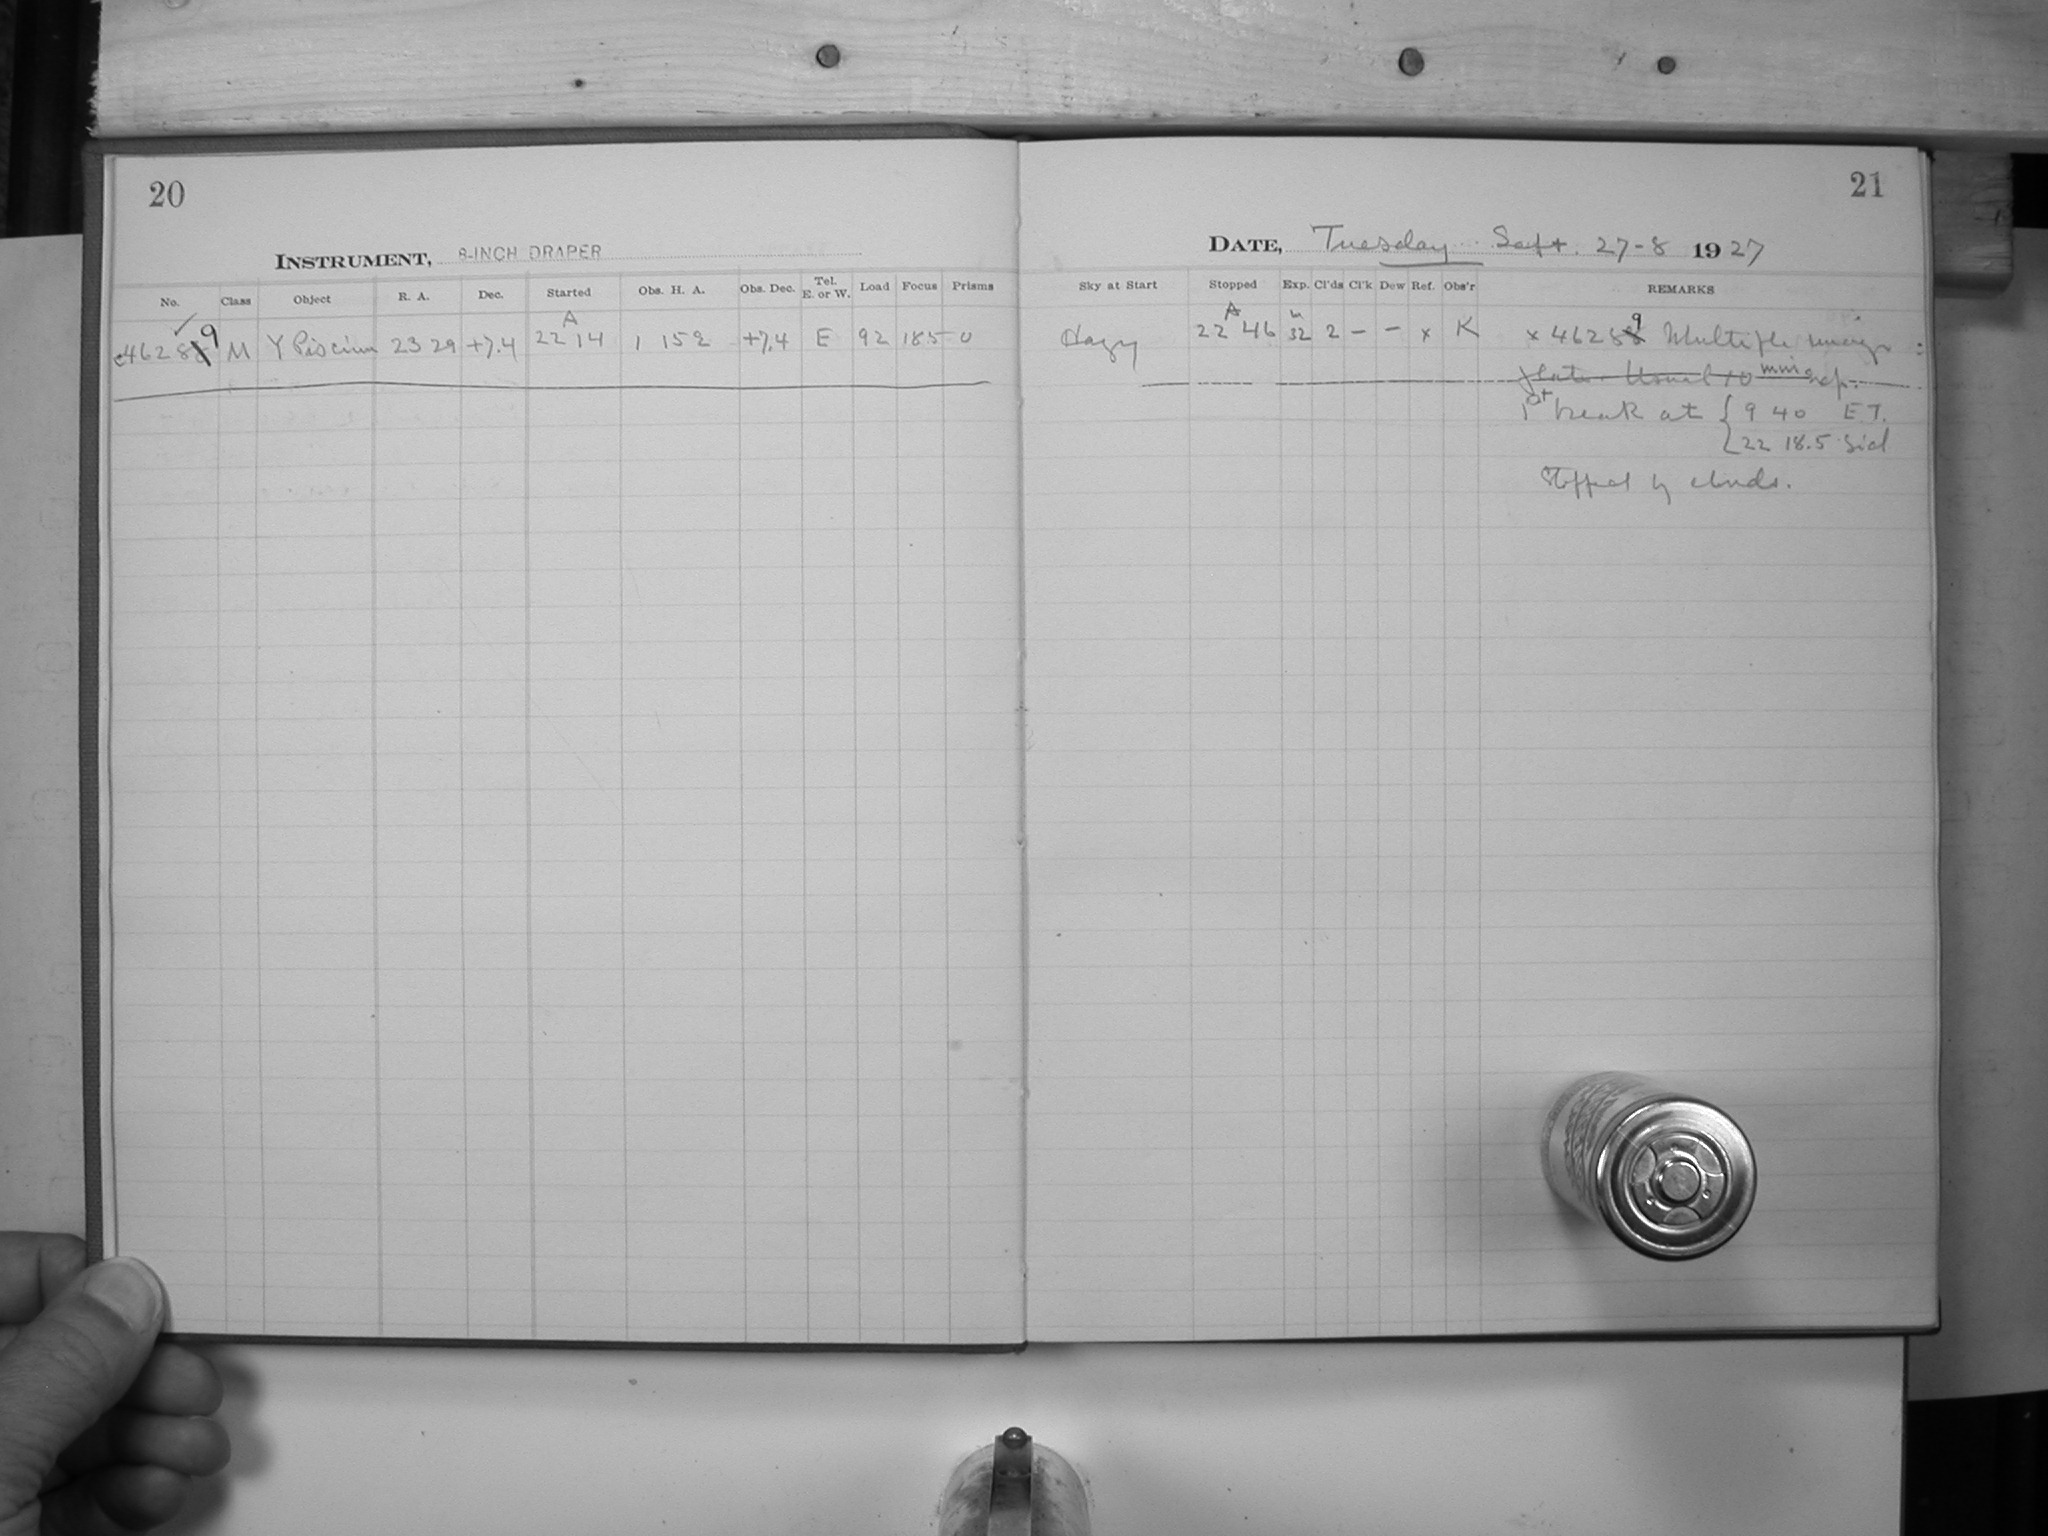 20
INSTRUMENT, 8-INCH DRAPER
No. Class Object R. A. Dec. Started Obs. H. A. Obs. Dec. Tel. E. or W. Load Focus Prisms
A
46289 M Y Piscium 23 29 +7.4 22 14 1 15 2 +7.4 E 92 185 0
21
DATE, Tuesday Sept. 27-8 1927
Sky at Start Stopped Exp. Cl'ds Cl'k Dew Ref. Obs'r REMARKS
A m
Hazy 22 46 32 2 – – x K x 46289 Multiple
Usual 10 min
1st break at { 9 40 E.T.
22 18.5 Sid
Stopped by clouds.